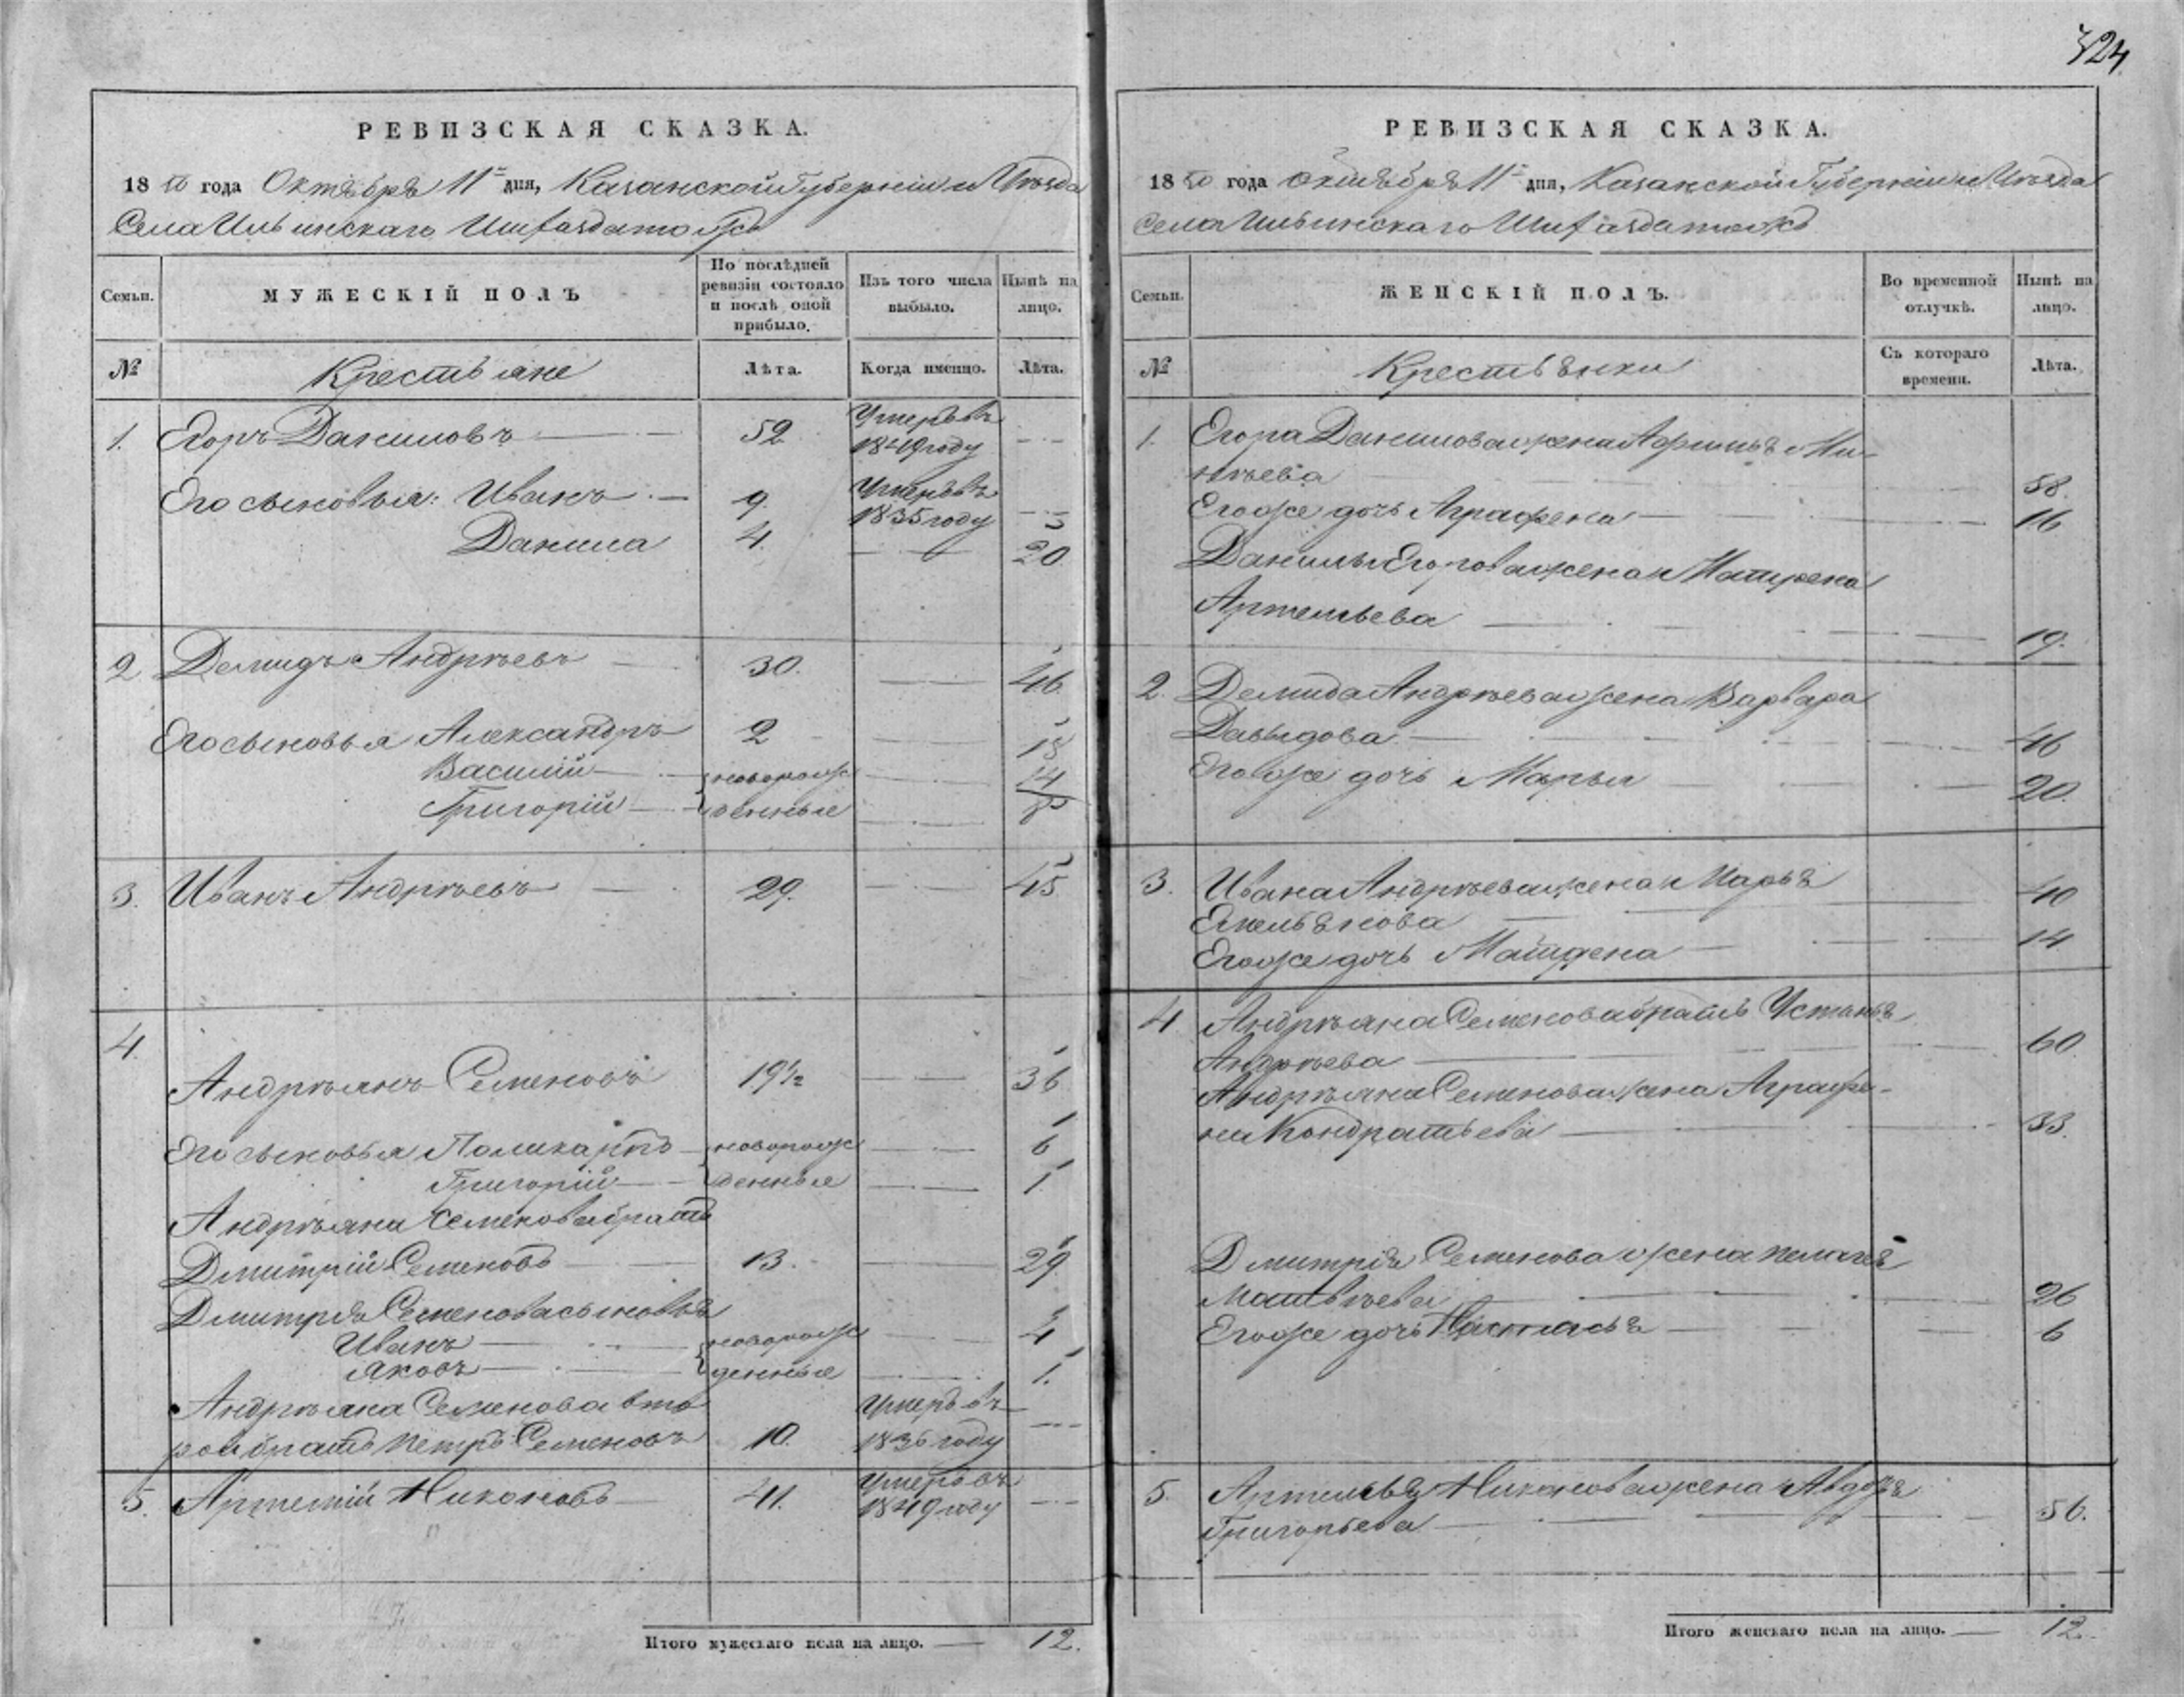 324
РЕВИЗСКАЯ СКАЗКА.
1850 года Октября 11го дня, Казанской Губерніи и Уѣзда
Села Ильинскаго
Семьи.
МУЖЕСКІЙ ПОЛЪ
По послѣдней ревизіи состояло и послѣ оной прибыло.
Изъ того числа выбыло.
Нынѣ на лицо.
№
Крестьяне
Лѣта.
Когда именно.
Лѣта.
1. Егоръ Даниловъ — 52 Умеръ въ 1849 году
Его сыновья: Иванъ — 9. Умеръ въ 1835 году
Данила 4. — 20
2 Демидъ Андрѣевъ — 30. — 46
Его сыновья Александръ 2 — 18
Василій — новорож — 14
Григорій — денные — 8
3. Иванъ Андрѣевъ — 29. — 45
4.
Андрѣянъ Семеновъ 19½ — 36
Его сыновья Поликарпъ — новорож — 6
Григорій — денные — 1
Андрѣяна Семенова братъ
Дмитрій Семеновъ 13. — 29
Дмитрія Семенова сыновья
Иванъ — новорож — 4
Яковъ — денные — 1.
Андрѣяна Семенова вто
рой братъ Петръ Семеновъ 10. Умеръ въ 1836 году —
5. Артемій Никоновъ — 41. Умеръ въ 1849 году —
Итого мужескаго пола на лицо. — 12.
РЕВИЗСКАЯ СКАЗКА.
1850 года Октября 11го дня, Казанской Губерніи и Уѣзда
Села Ильинскаго
Семьи.
ЖЕНСКІЙ ПОЛЪ.
Во временной отлучкѣ.
Нынѣ на лицо.
№
Крестьянки
Съ котораго времени.
Лѣта.
1. Егора Данилова жена Афимья Ми-
нѣева 58.
Его же дочь Аграфена — 16
Данилы Егорова жена Матрена
Артемьева — 19.
2. Демида Андрѣева жена Варвара
Давыдова — 46
Его же дочь Марья — 20.
3. Ивана Андрѣева жена Марья 40
Емельянова
Его же дочь Матрена — 14
4 Андрѣяна Семенова Устинья
Андрѣева — 60
Андрѣяна Семенова жена Аграфе-
на Кондратьева — 33.
Дмитрія Семенова жена Пелагея
Матвѣева — 26
Его же дочь Настасья — 6
5. Артемья Никонова жена Авдотья
Григорьева — 56.
Итого женскаго пола на лицо. — 12.